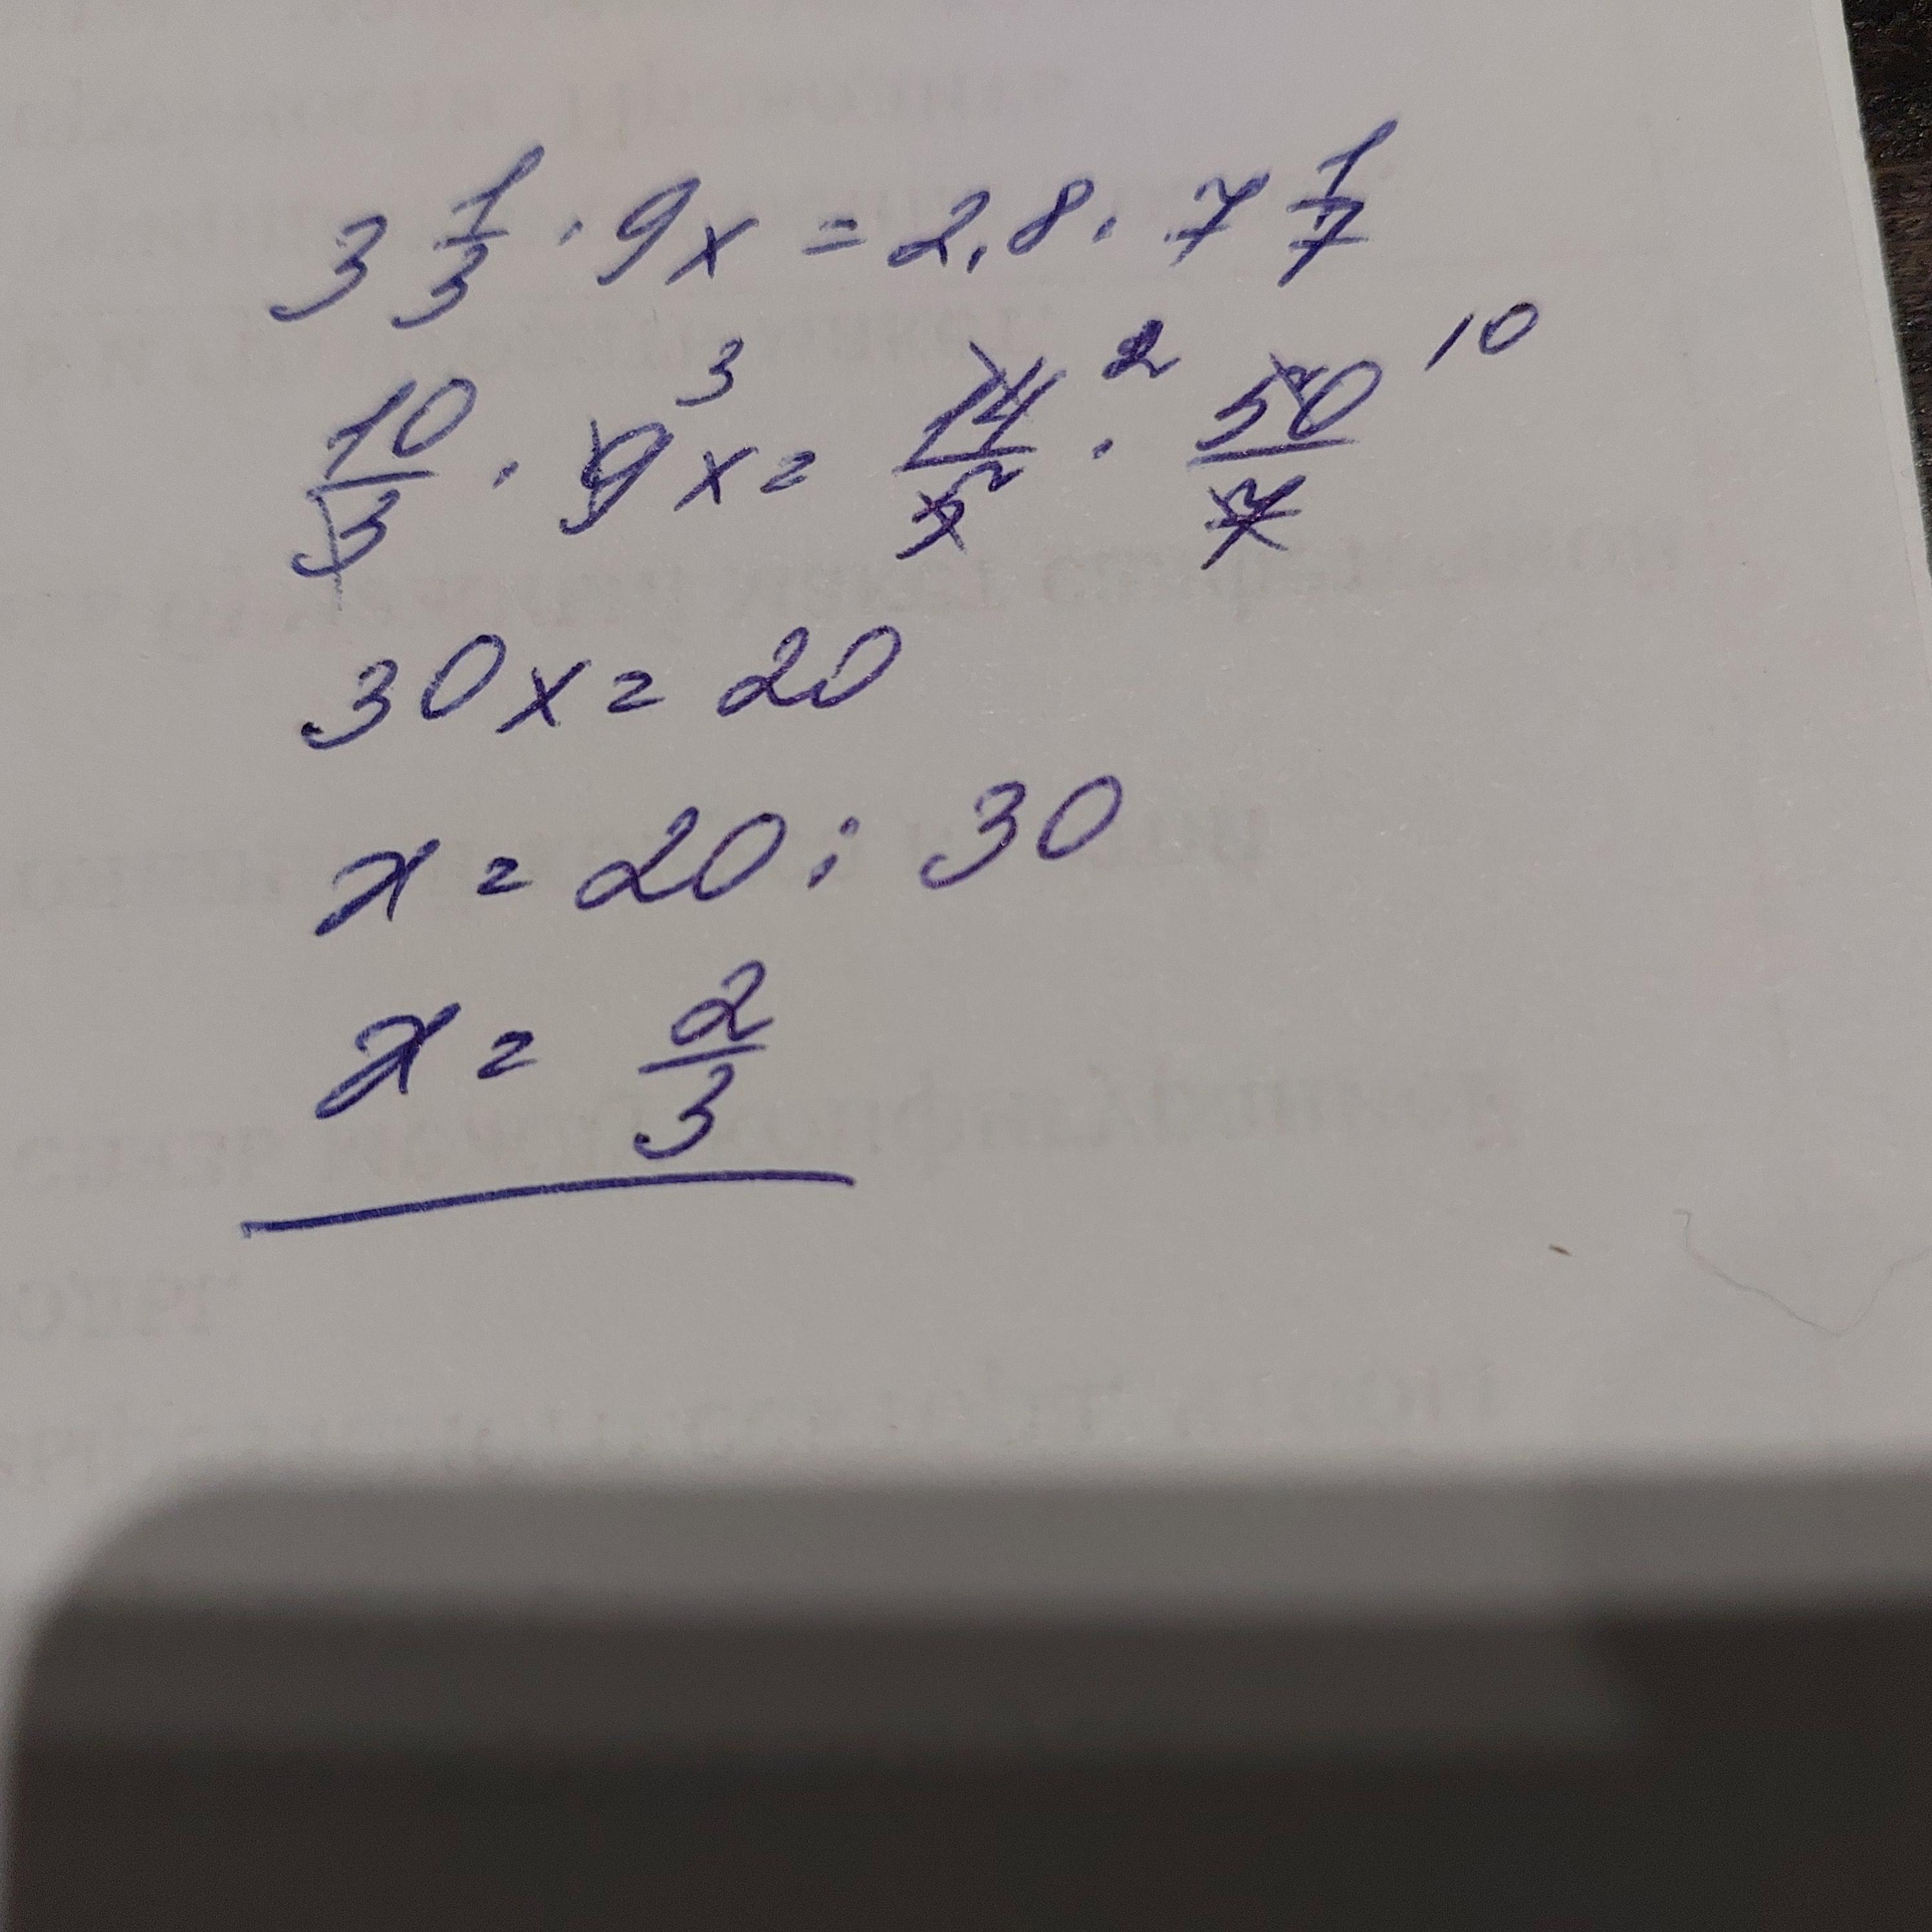 3 1/3 · 9x = 2,8 · 7 1/7
10/3 · 9 3 x = 14/5 2 · 50/7 10
30x = 20
x = 20 : 30
x = 2/3